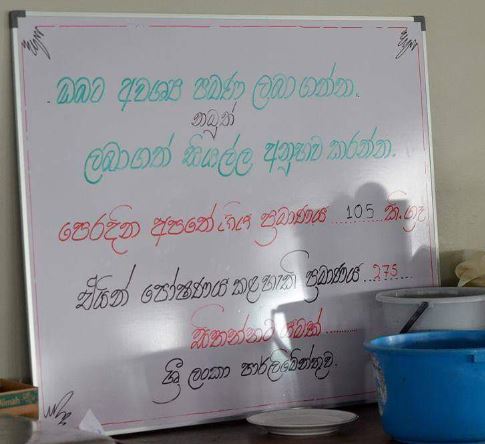 ඔබට අවශ්‍ය පමණ ලබාගන්න.
නමුත්
ලබාගත් සියල්ල අනුභව කරන්න.
පෙරදින අපතේ ගිය ප්‍රමාණය 105 කි.ග්‍රෑ
ඒයින් පෝෂණය කළහැකි ප්‍රමාණය 275
සිතන්නට යමක් ..........
ශ්‍රී ලංකා පාර්ලිමේන්තුව.